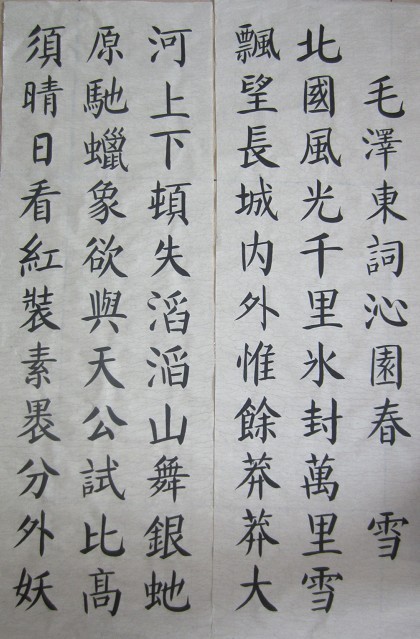 毛澤東詞沁園春 雪
北國風光千里氷封萬里雪
飄望長城内外惟餘莽莽大
河上下頓失滔滔山舞銀虵
原馳蠟象欲與天公試比髙
須晴日看紅裝素褁分外妖